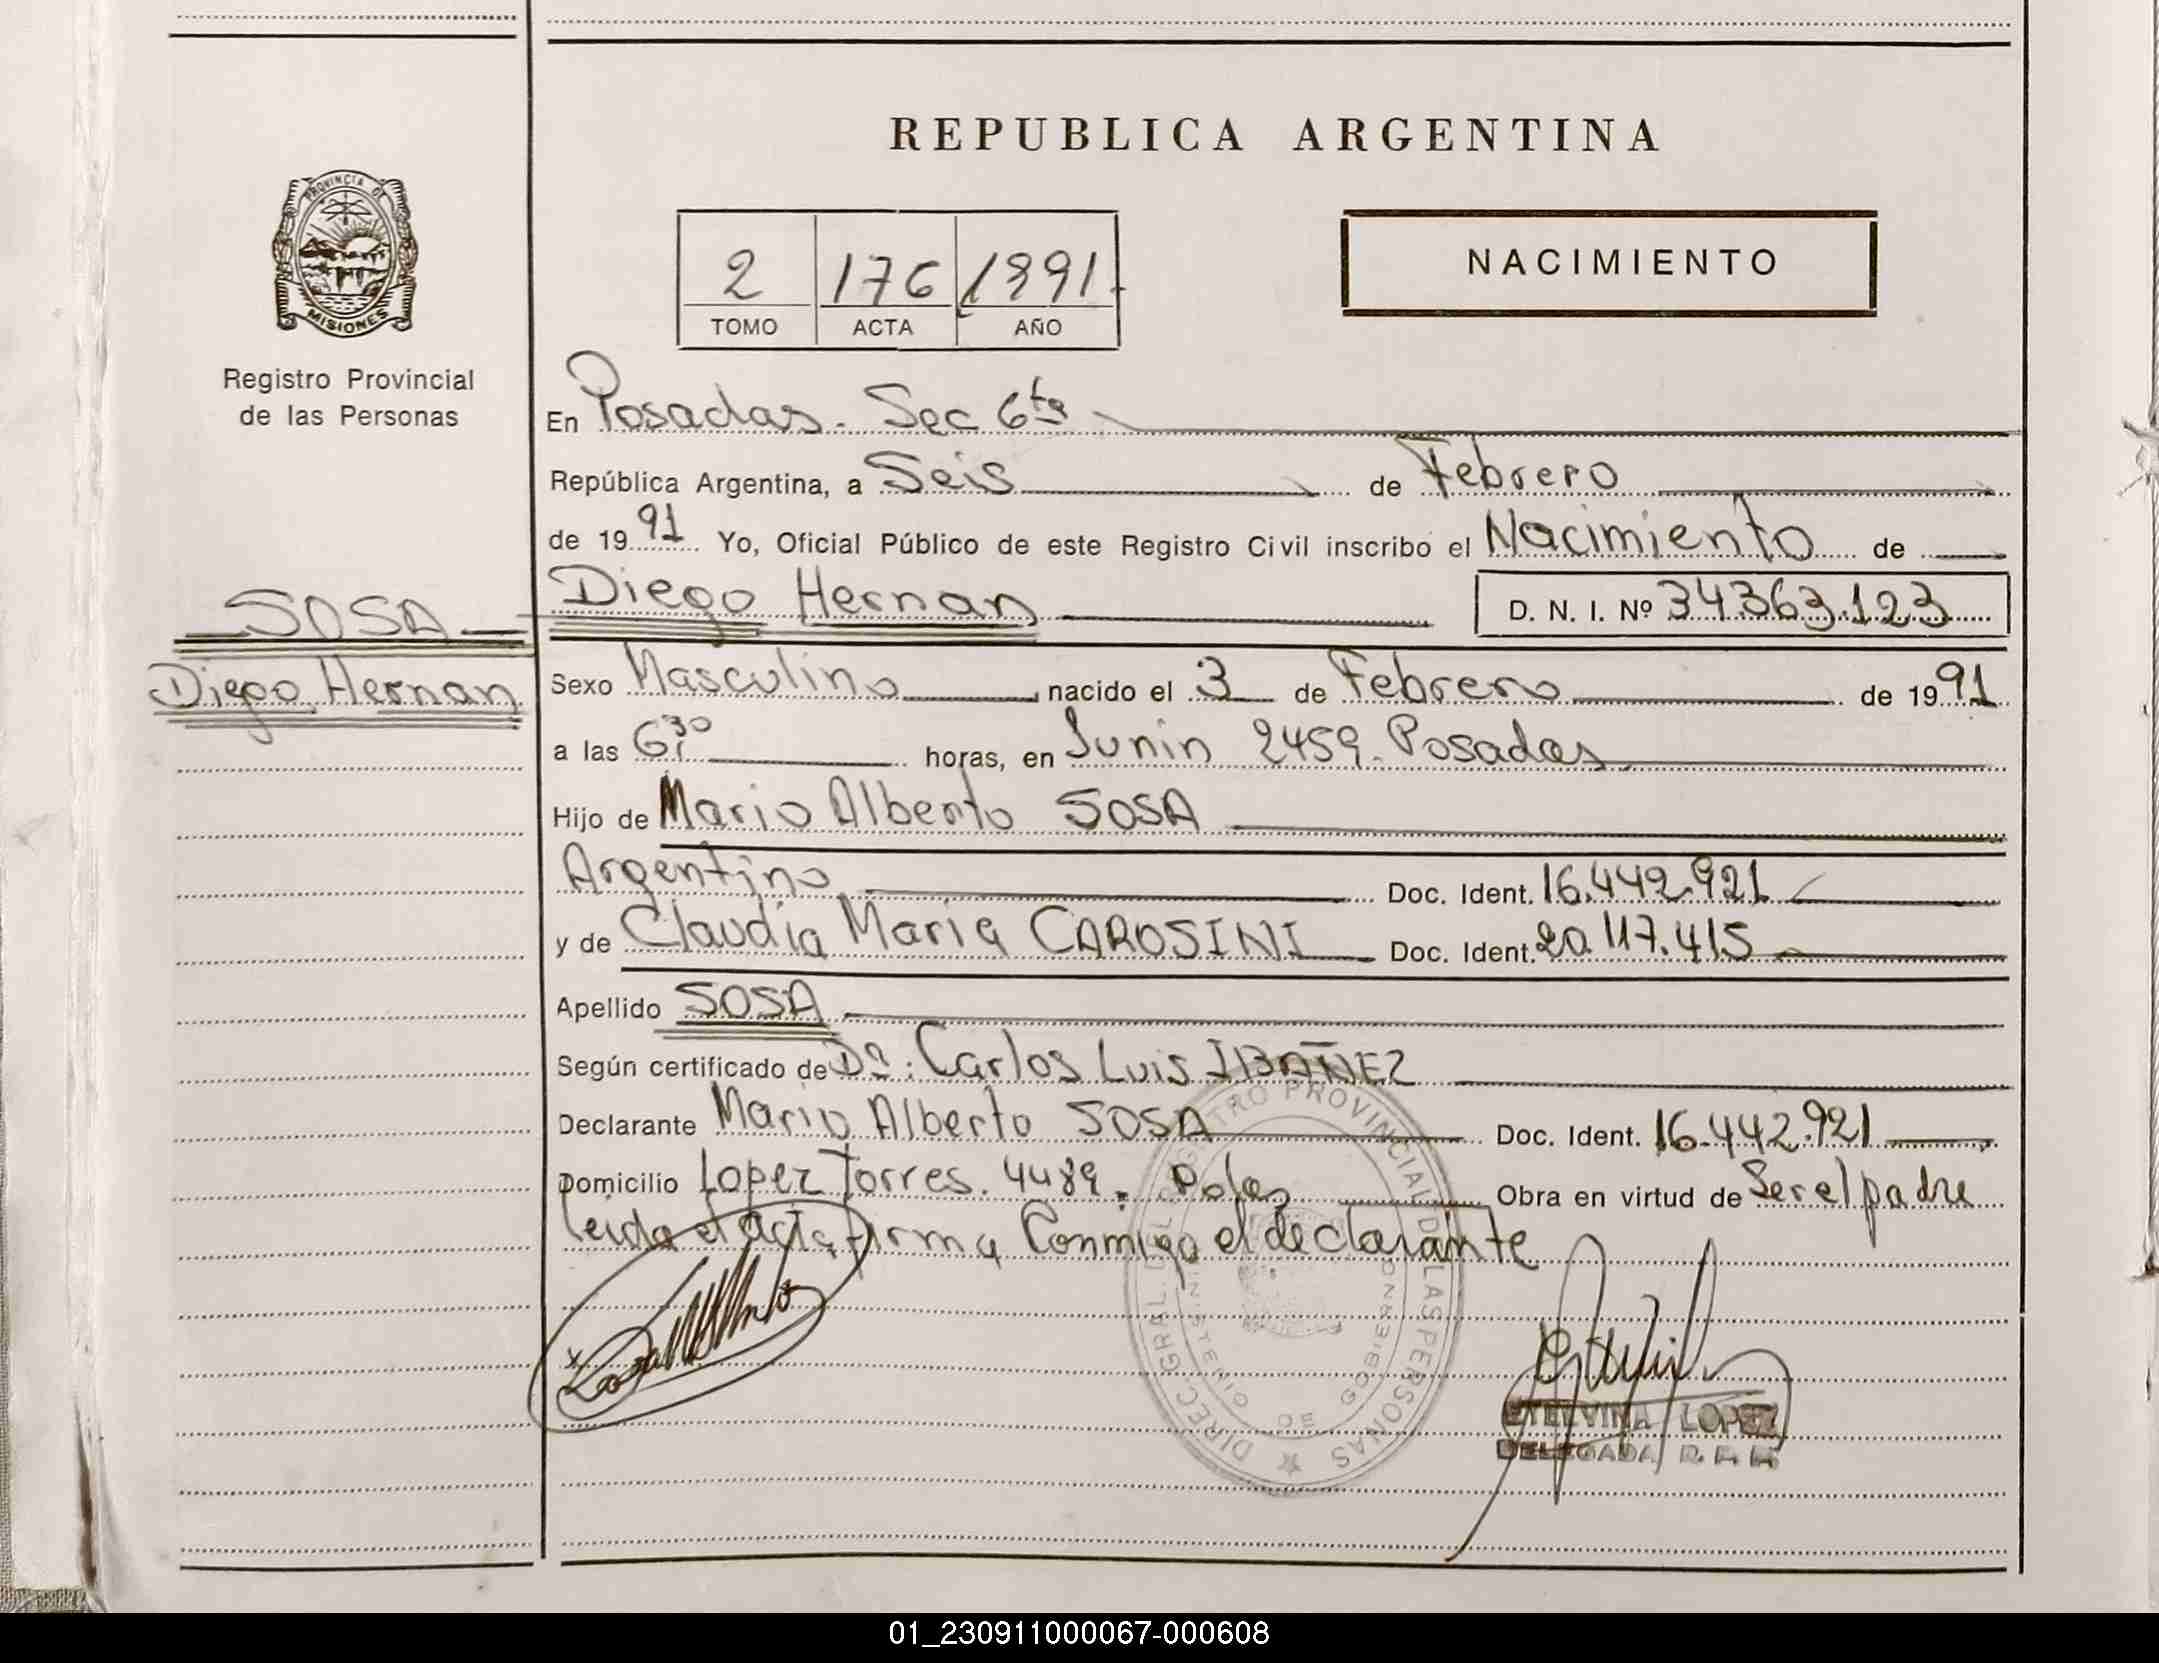 REPUBLICA ARGENTINA
PROVINCIA DE
MISIONES
Registro Provincial
de las Personas
2 176 1991.
TOMO ACTA AÑO
NACIMIENTO
En Posadas. Sec 6ta
República Argentina, a Seis de Febrero
de 1991 Yo, Oficial Público de este Registro Civil inscribo el Nacimiento de
SOSA
Diego Hernan
Diego Hernan D. N. I. Nº 34.363.123
Sexo Masculino nacido el 3 de Febrero de 1991
a las 6,30 horas, en Junin 2459. Posadas
Hijo de Mario Alberto SOSA
Argentino Doc. Ident. 16.442.921
y de Claudia Maria CAROSINI Doc. Ident. 20.117.415
Apellido SOSA
Según certificado de Dº: Carlos Luis IBAÑEZ
Declarante Mario Alberto SOSA Doc. Ident. 16.442.921
Domicilio Lopez Torres. 4489. Pdas Obra en virtud de Ser el padre
leida el acta, firma Conmigo el declarante
DIREC. GRAL. DEL REGISTRO PROVINCIAL DE LAS PERSONAS
MINISTERIO DE GOBIERNO
ETELVINA LOPEZ
DELEGADA R.
01_230911000067-000608